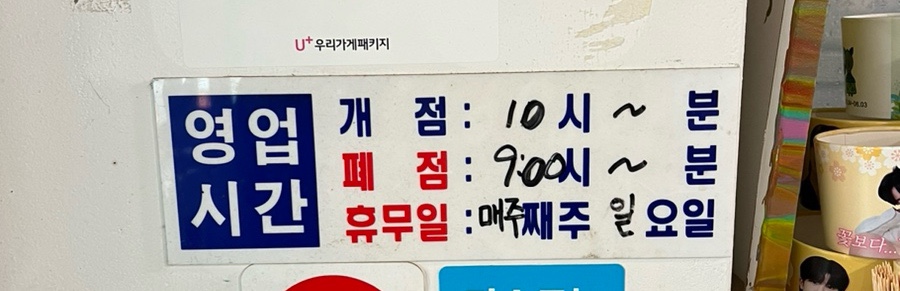 U+우리가게패키지
영업
시간
개 점: 10시 ~ 분
폐 점: 9:00시 ~ 분
휴무일:매주째주 일요일
꽃보다...